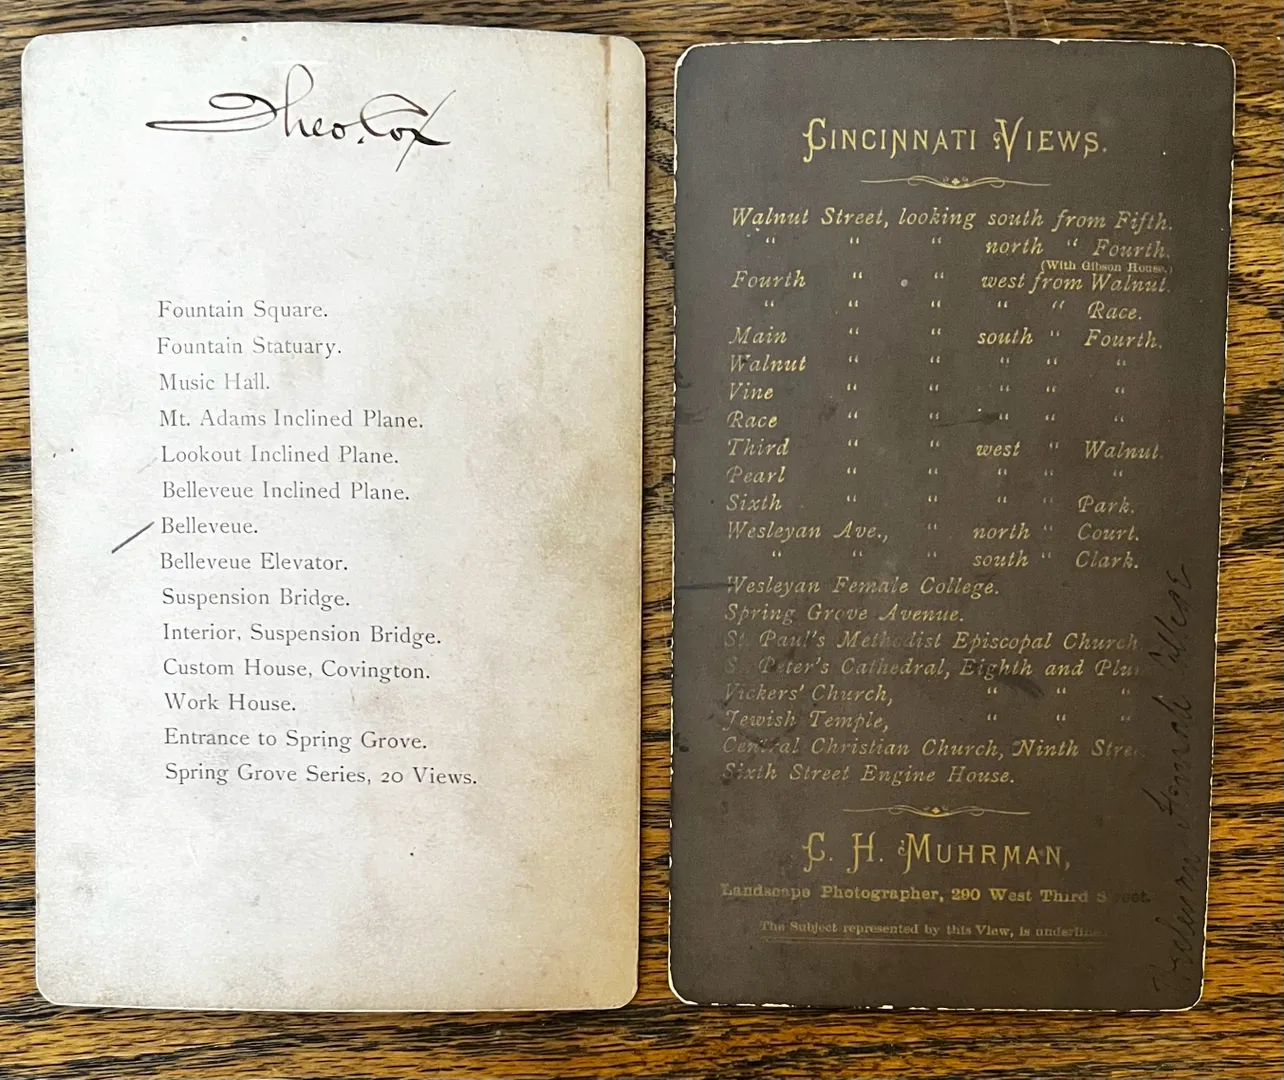 Theo. Cox
Fountain Square.
Fountain Statuary.
Music Hall.
Mt. Adams Inclined Plane.
Lookout Inclined Plane.
Belleveue Inclined Plane.
Belleveue.
Belleveue Elevator.
Suspension Bridge.
Interior, Suspension Bridge.
Custom House, Covington.
Work House.
Entrance to Spring Grove.
Spring Grove Series, 20 Views.
CINCINNATI VIEWS.
Walnut Street, looking south from Fifth.
" " " north " Fourth.
(With Gibson House.)
Fourth " " west from Walnut.
" " " " " Race.
Main " " south " Fourth.
Walnut " " " " "
Vine " " " " "
Race " " " " "
Third " " west " Walnut.
Pearl " " " " "
Sixth " " " " Park.
Wesleyan Ave., " north " Court.
" " " south " Clark.
Wesleyan Female College.
Spring Grove Avenue.
St. Paul's Methodist Episcopal Church
St. Peter's Cathedral, Eighth and Plu
Vickers' Church, " " "
Jewish Temple, " " "
Central Christian Church, Ninth Stree
Sixth Street Engine House.
C. H. MUHRMAN,
Landscape Photographer, 290 West Third Street.
The Subject represented by this View, is underline
Female